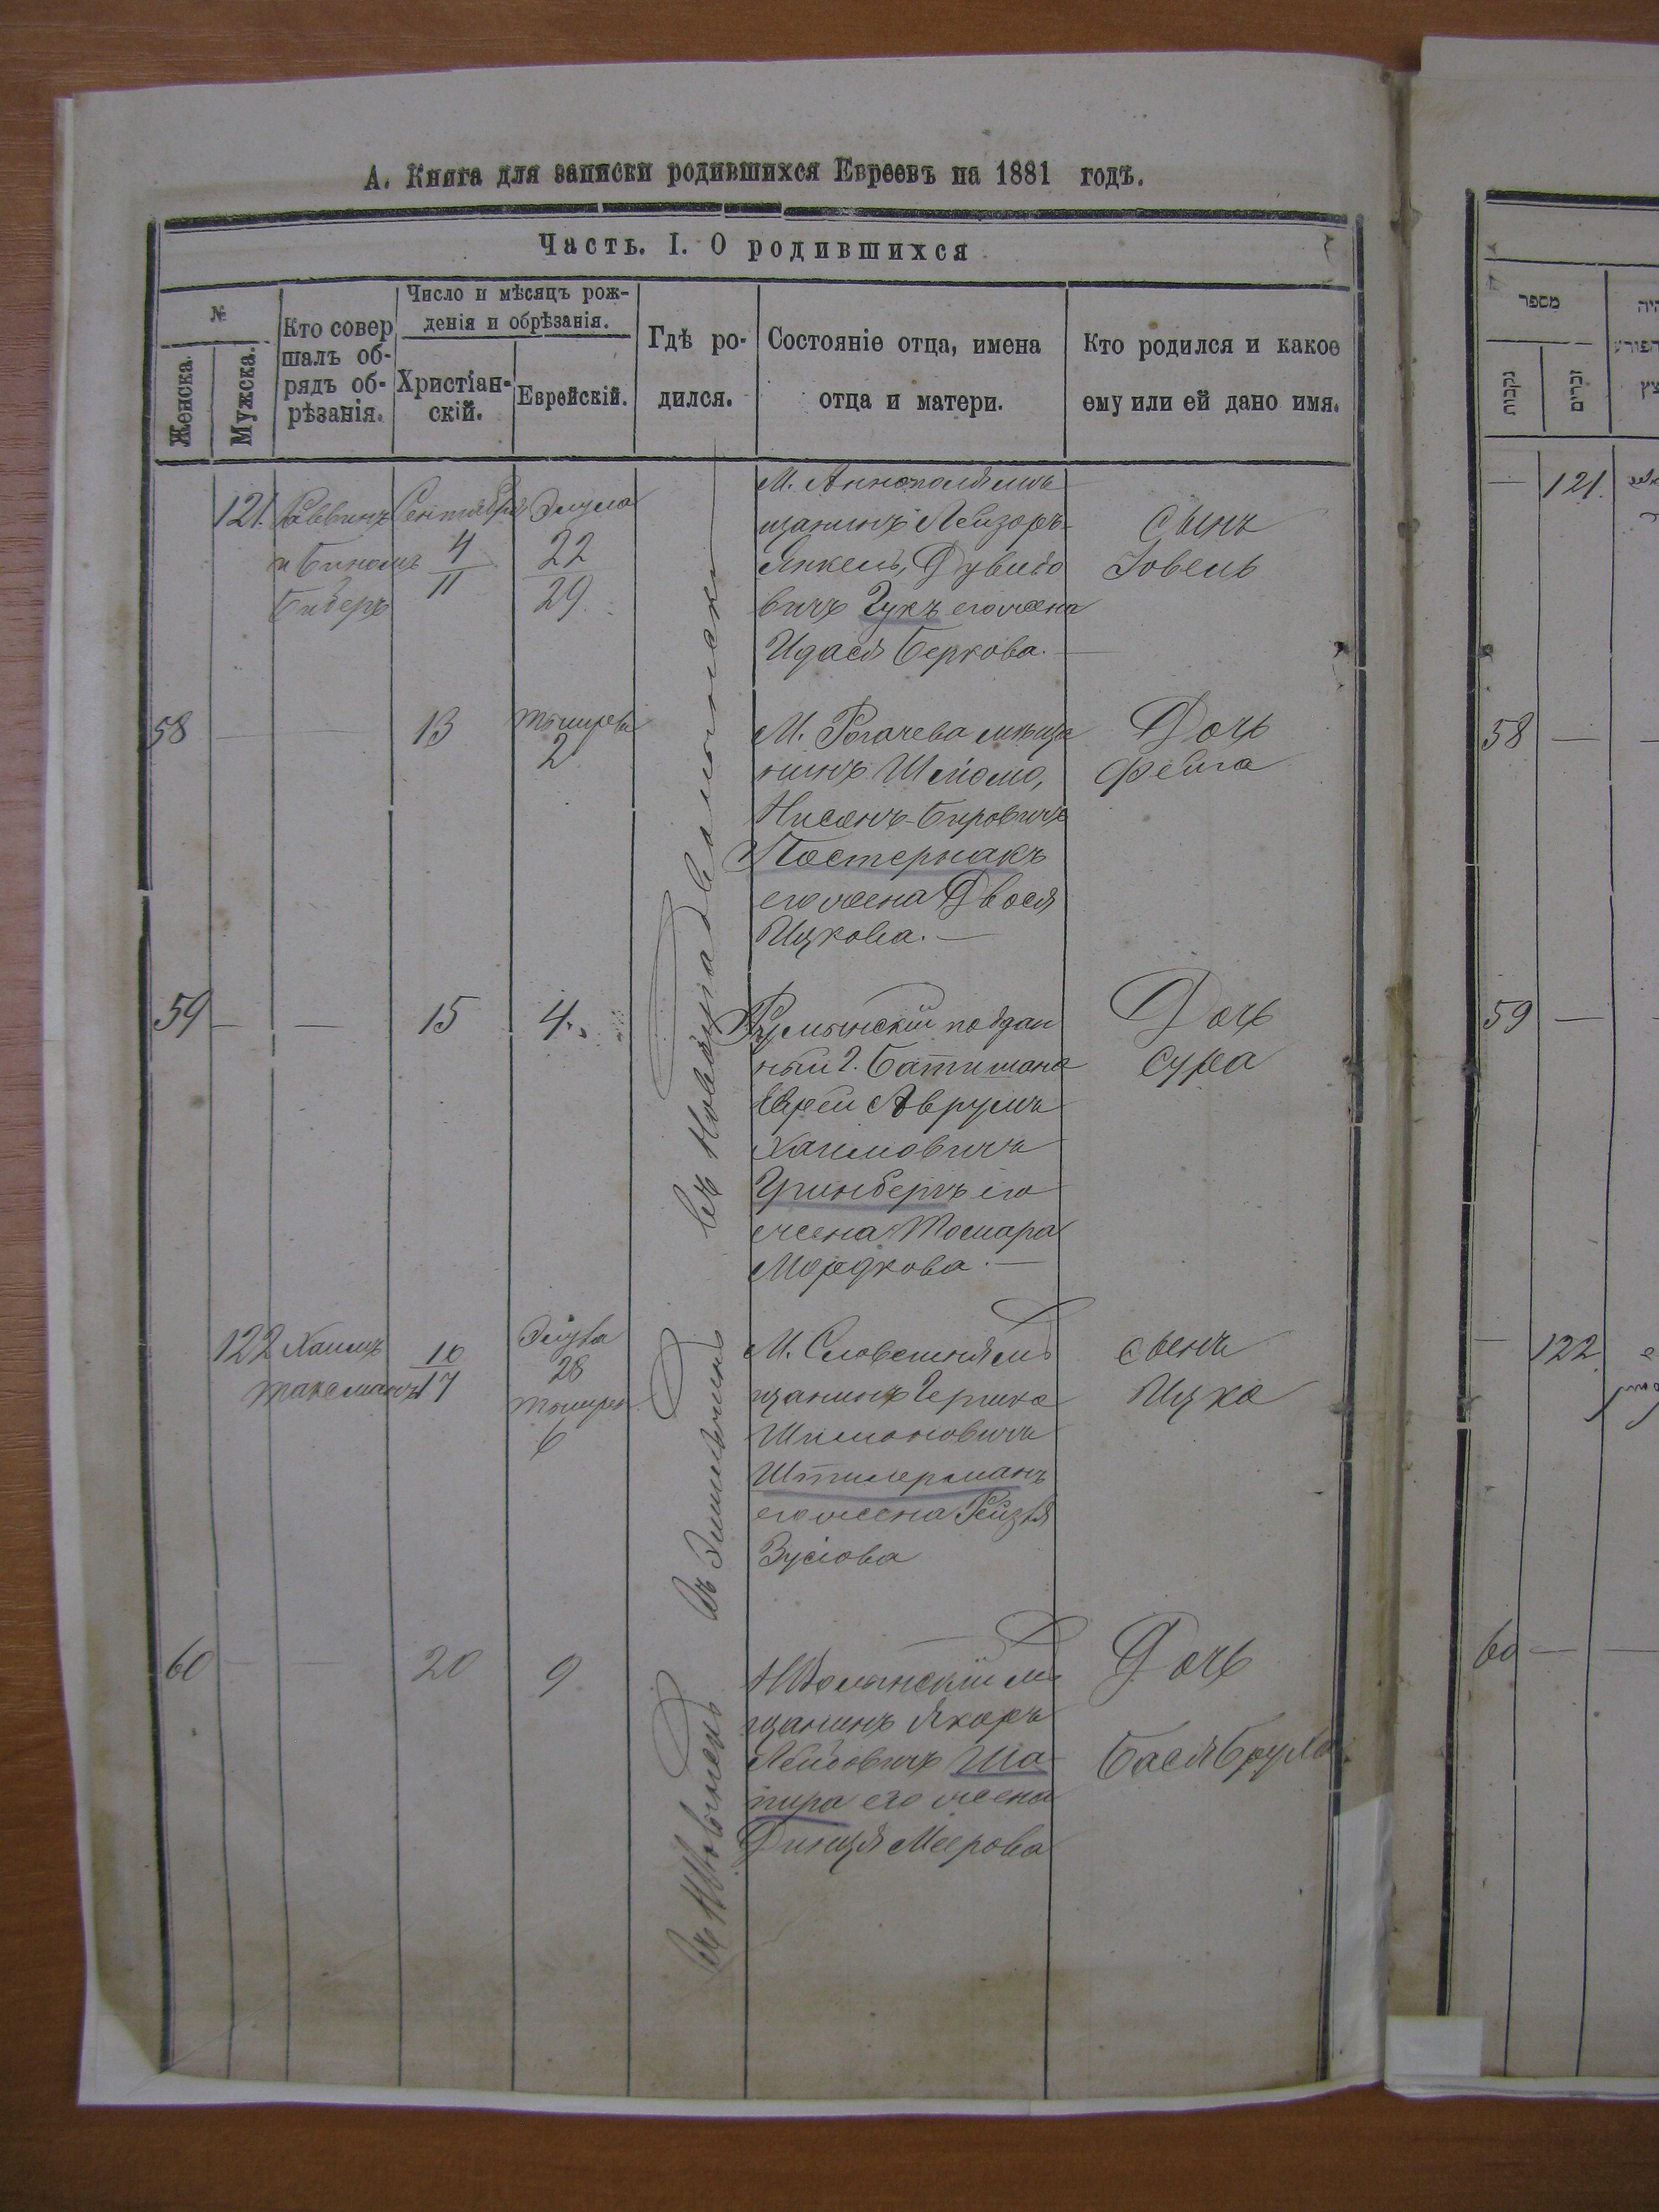 А. Книга для записки родившихся Евреевъ на 1881 годъ.
Часть. I. О родившихся
№
Женска.
Мужска.
Кто совер
шалъ об-
рядъ об-
рѣзанія.
Число и мѣсяцъ рож-
денія и обрѣзанія.
Христіан-
скій.
Еврейскій.
Гдѣ ро-
дился.
Состояніе отца, имена
отца и матери.
Кто родился и какое
ему или ей дано имя.
121.
Раввинъ
и Биномъ
Биберъ
Сентября
4
11
Элула
22
29
въ Новоградволынске
М. Аннополя мѣ
щанинъ Лейзоръ-
Янкель, Дувидо
вичъ Цукъ его жена
Идася Беркова.
Сынъ
Іовель
58
—
—
13
Тышрей
2
М. Рогачева мѣща
нинъ Шлёмо,
Нисенъ-Беровичъ
Постернакъ
его жена Двося
Ицкова. —
Дочь
Фейга
59
—
—
15
4.
Румынскій поддан
ный г.
Еврей Аврумъ
Хаимовичъ
Гринбергъ его
жена Томара
Мордкова. —
Дочь
Сура
122
Хаимъ
16
17
Элула
28
Тышрей
6
М. Словечня мѣ
щанинъ Гершко
Шимоновичъ
Штилерманъ
его жена Рейзя
Зусіова
Сынъ
Ицко
60
—
—
20
9
НВолынскій мѣ
щанинъ
Лейбовичъ Ша-
пира его жена
Динця Меерова
Дочь
Бася
מספר
נקבות
זכרים
—
121.
58
—
59
—
—
122.
60
—